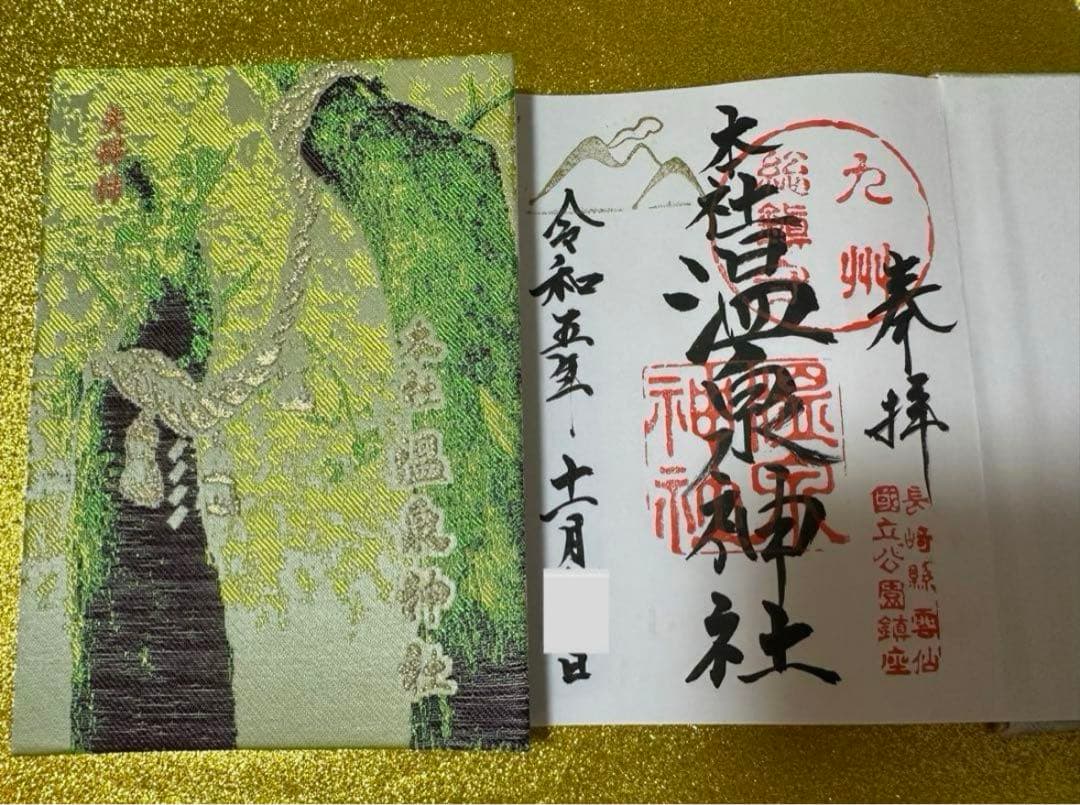 夫婦柿
本社 温泉神社
奉拝
長崎縣雲仙
國立公園鎮座
九州
総鎮守
本社温泉神社
温泉
神社
令和五年十一月 日